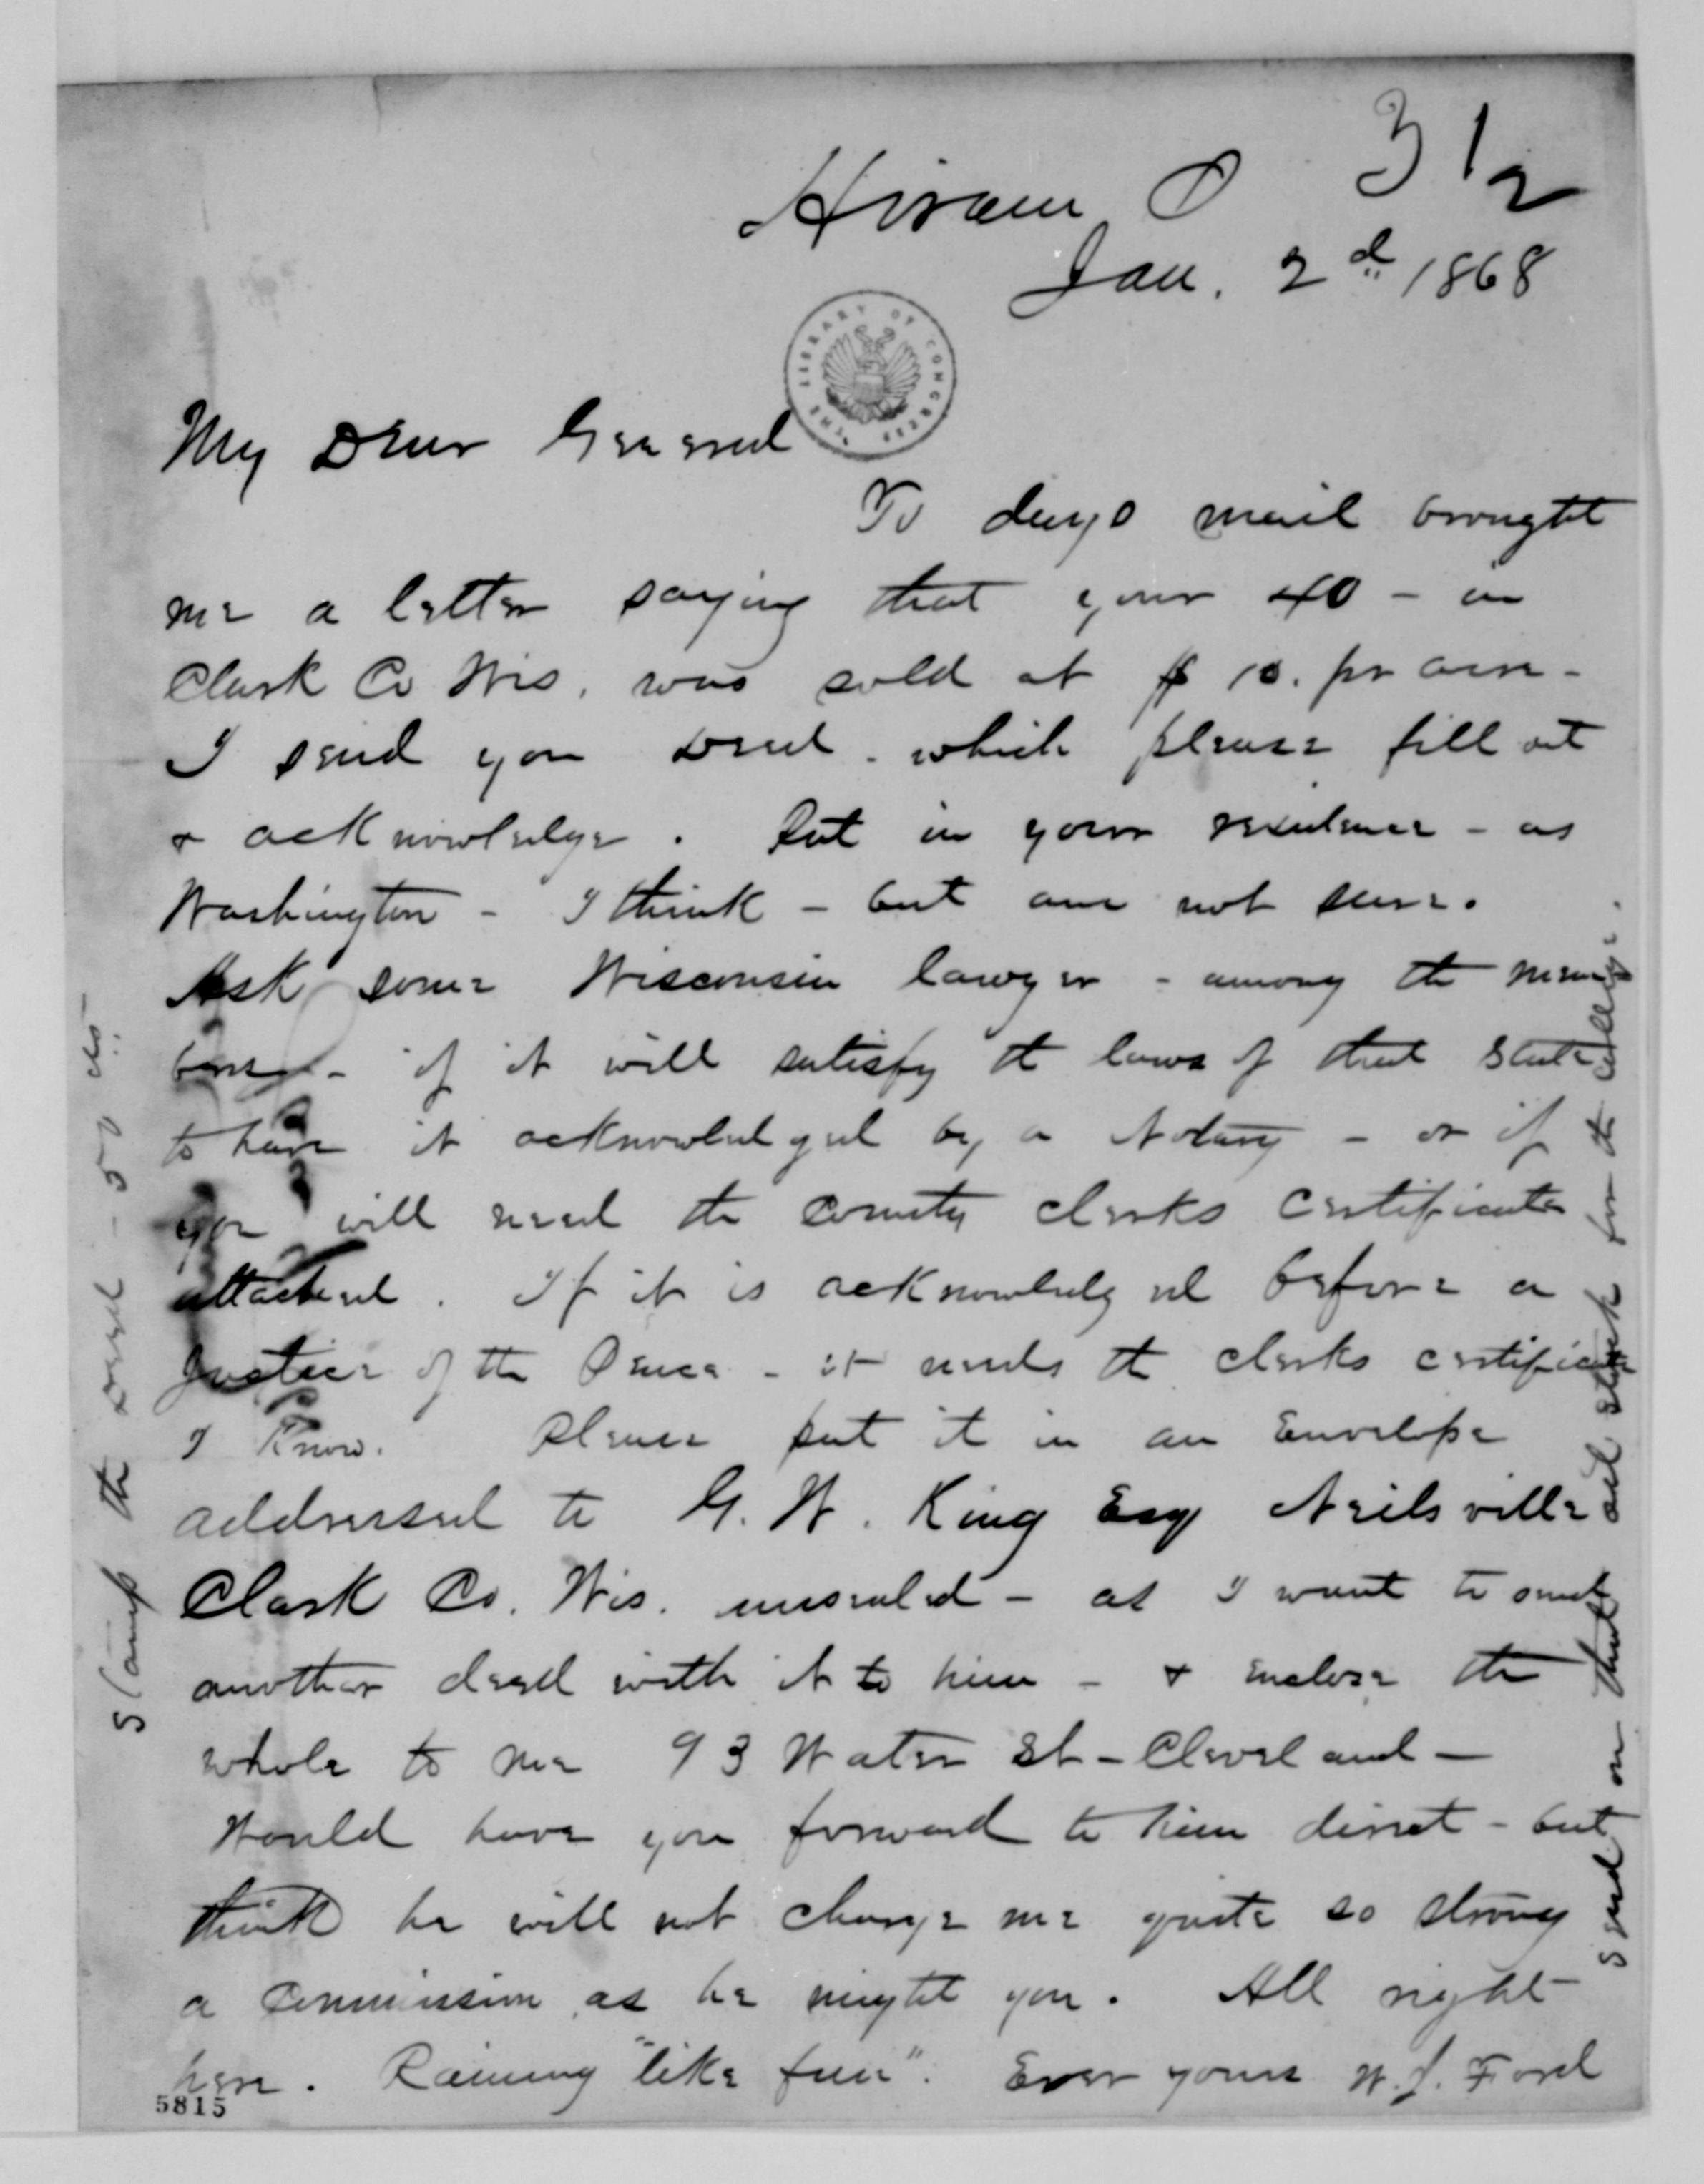 3 1/2
Hiram O
Jan. 2d 1868
THE LIBRARY OF CONGRESS
My Dear General
To days mail brought
me a letter saying that your 40 - in
Clark Co Wis. was sold at $10. pr acre -
I send you Deed - which please fill out
& acknowledge. Put in your residence - as
Washington - I think - but am not sure.
Ask some Wisconsin lawyer - among the mem
bers - if it will satisfy th laws of that State
to have it acknowledged by a Notary - or if
you will need the County Clerks Certificate
attached. If it is acknowledged before a
Justice of the Peace - it needs th clerks certificate
I Know. Please put it in an Envelope
addressed to G. W. King Esq Neilsville
Clark Co. Wis. unsealed - as I want to send
another deed with it to him - & enclose the
whole to me 93 Water St - Cleveland -
Would have you forward to him direct - but
think he will not charge me quite so strong
a Commission as he might you. All right
here. Raining "like fun". Ever yours W. J. Ford
Stamp the Deed - 50 cts.
Send on that for the college.
5815